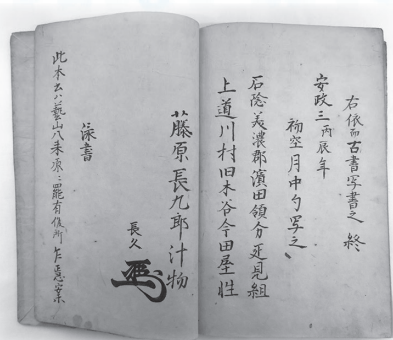 右依而古書写書之 終
安政三丙辰年
初空月中勺写之
石陰美濃郡濱田領分疋見組
上道川村旧木谷今田屋性
藤原長九郎汁物
長久
泳書
此本云ハ藝山八耒原ニ罷有候所